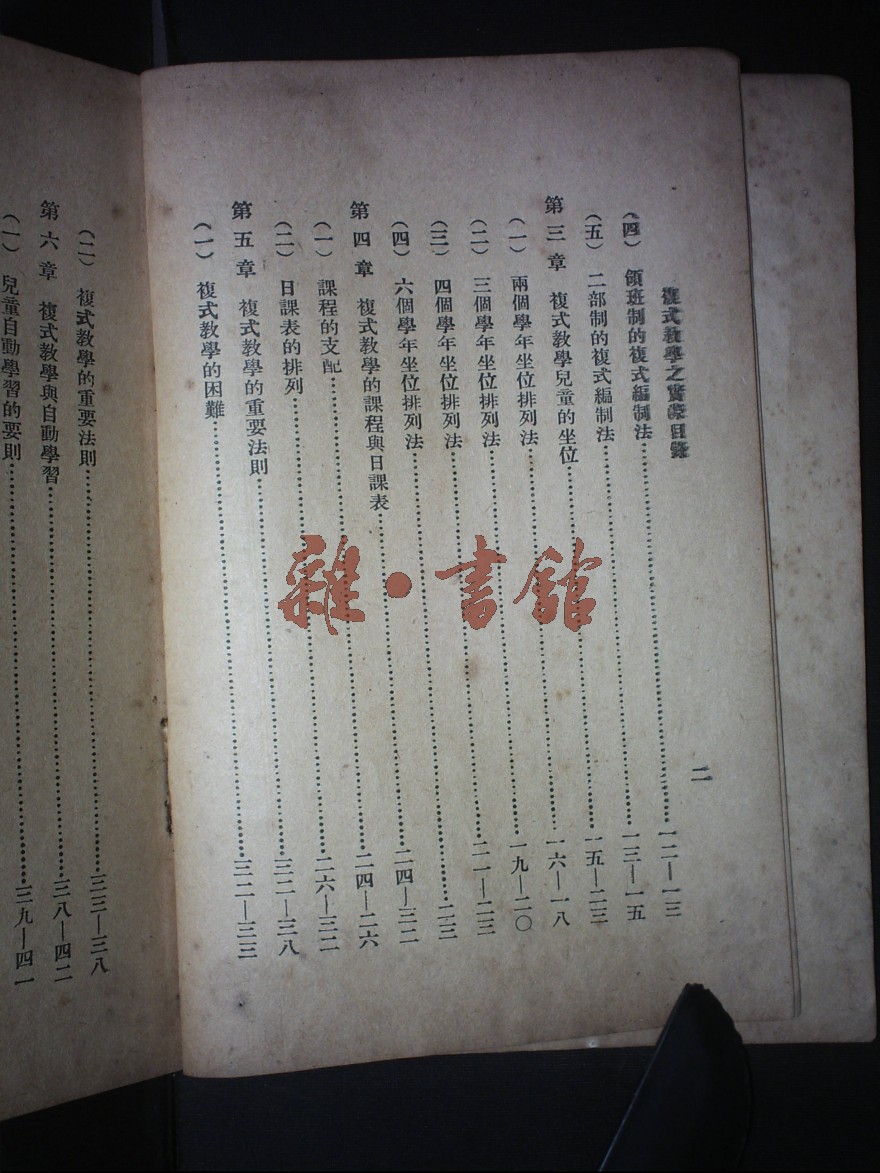 複式教學之實際目錄 二
（四）領班制的複式編制法…………一二—一三
（五）二部制的複式編制法…………一三—一五
第三章 複式教學兒童的坐位…………一五—二三
（一）兩個學年坐位排列法…………一六—一八
（二）三個學年坐位排列法…………一九—二〇
（三）四個學年坐位排列法…………二一—二三
（四）六個學年坐位排列法…………二三
第四章 複式教學的課程與日課表…………二四—三二
（一）課程的支配…………二四—二六
（二）日課表的排列…………二六—三二
第五章 複式教學的重要法則…………三二—三八
（一）複式教學的困難…………三二—三三
（二）複式教學的重要法則…………三三—三八
第六章 複式教學與自動學習…………三八—四二
（一）兒童自動學習的要則…………三九—四一
雜·書館